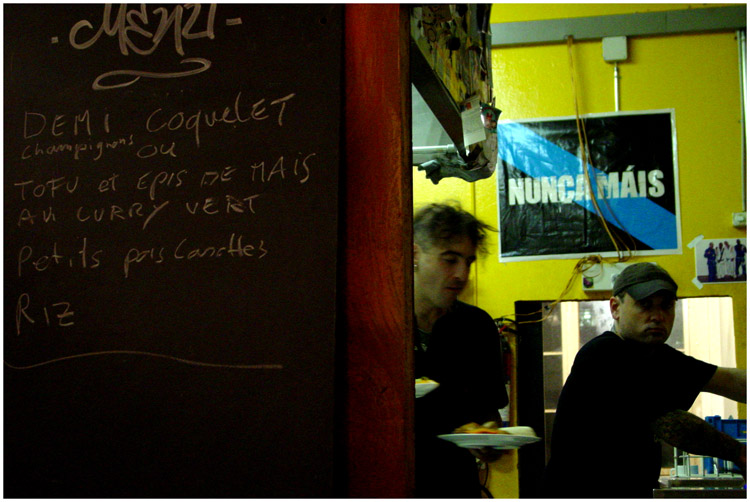 MENU
DEMI COQUELET
champignons OU
TOFU et EPIS DE MAIS
AU CURRY VERT
Petits pois Carottes
RIZ
NUNCA MÁIS